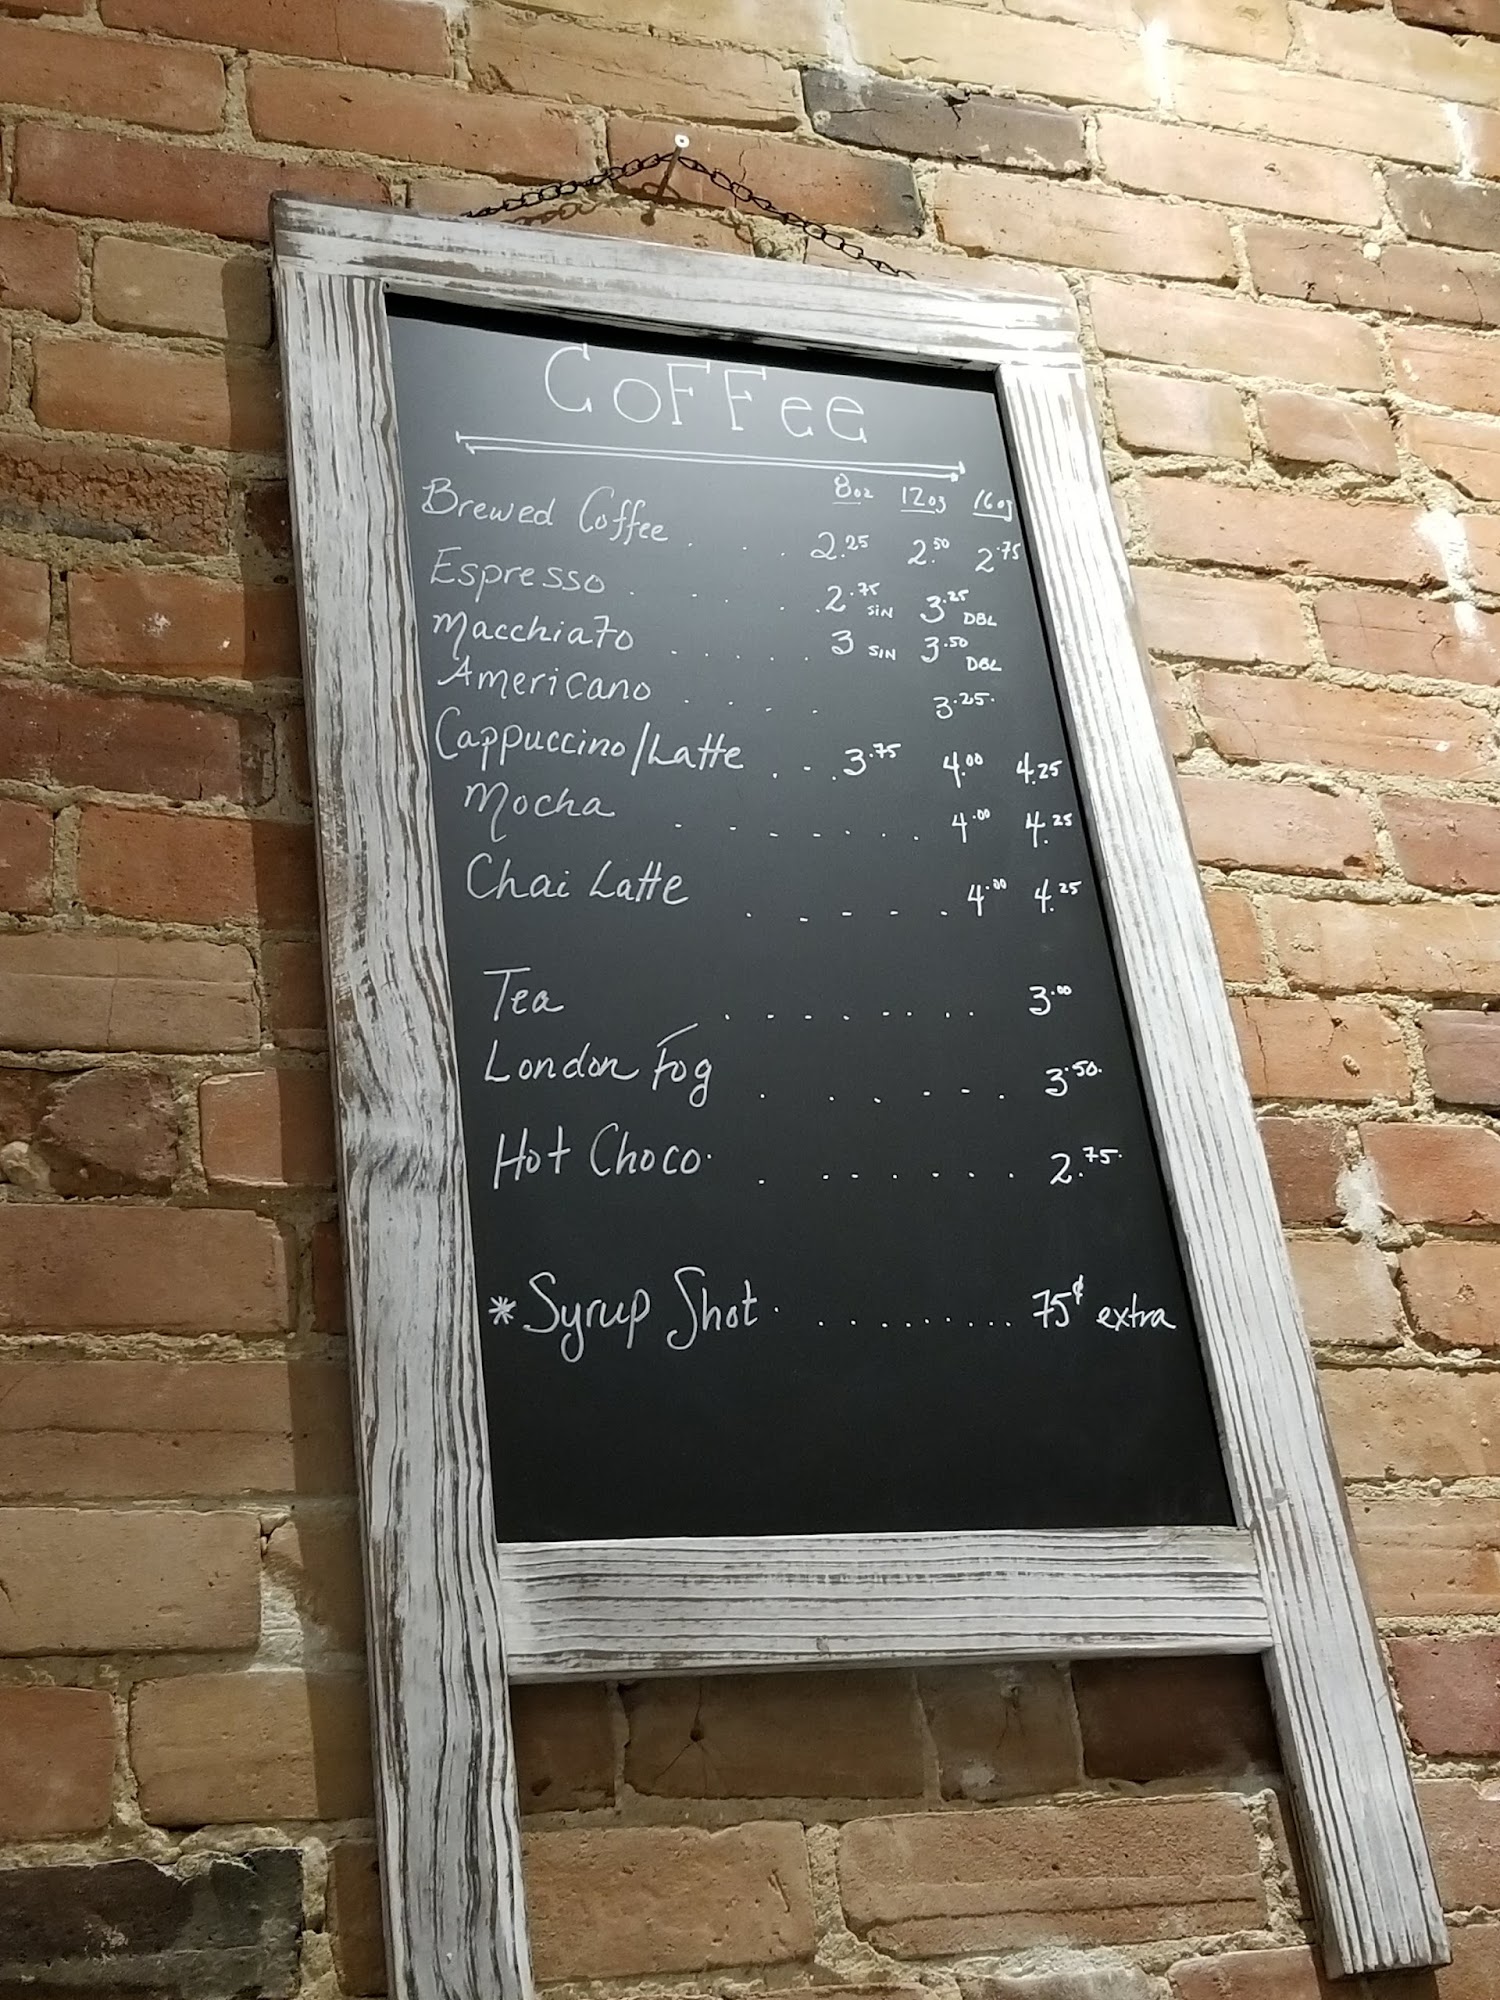 CoFFee
8oz 12oz 16oz
Brewed Coffee . . . 2.25 2.50 2.75
Espresso . . . . 2.75 SIN 3.25 DBL
Macchiato . . . . . 3 SIN 3.50 DBL
Americano . . . . 3.25
Cappuccino/Latte . . . 3.75 4.00 4.25
Mocha . . . . . . 4.00 4.25
Chai Latte . . . . . 4.00 4.25
Tea . . . . . . . . 3.00
London Fog . . . . . . 3.50
Hot Choco. . . . . . . . 2.75
*Syrup Shot. . . . . . . . . . 75¢ extra